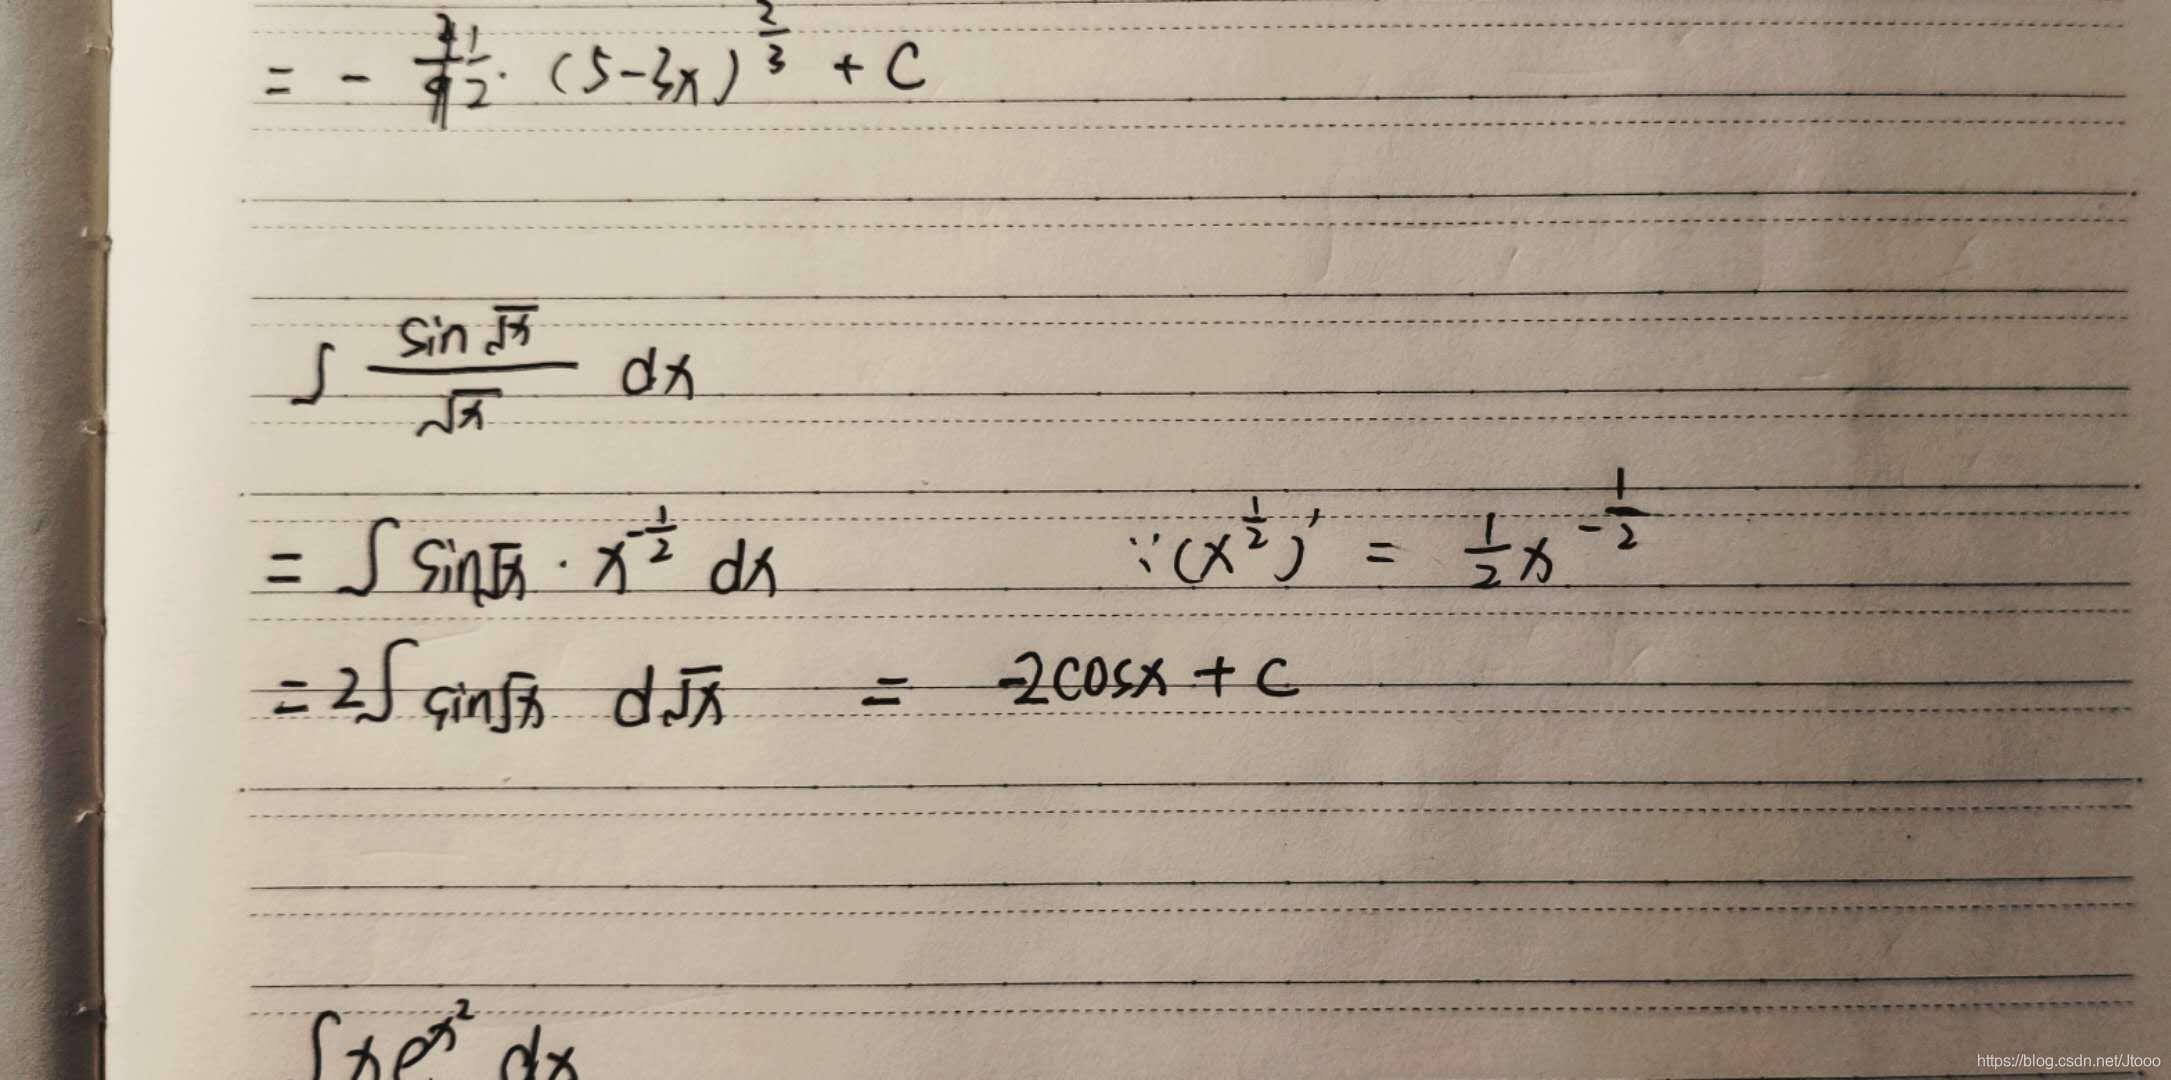 = - 1/2 · (5-3x)^(2/3) + C
∫ sin√x / √x dx
= ∫ sin√x · x^(-1/2) dx ∵ (x^(1/2))' = 1/2 x^(-1/2)
= 2∫ sin√x d√x = -2cosx + C
∫ x e^(x^2) dx
https://blog.csdn.net/Jtooo